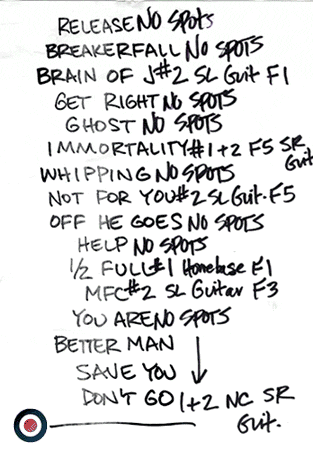 RELEASE NO SPOTS
BREAKERFALL NO SPOTS
BRAIN OF J#2 SL Guit F1
GET RIGHT NO SPOTS
GHOST NO SPOTS
IMMORTALITY #1+2 F5 SR Guit
WHIPPING NO SPOTS
NOT FOR YOU #2 SL Guit. F5
OFF HE GOES NO SPOTS
HELP NO SPOTS
1/2 FULL #1 Homebase F1
MFC #2 SL Guitar F3
YOU ARE NO SPOTS
BETTER MAN
SAVE YOU
DON'T GO 1+2 NC SR Guit.